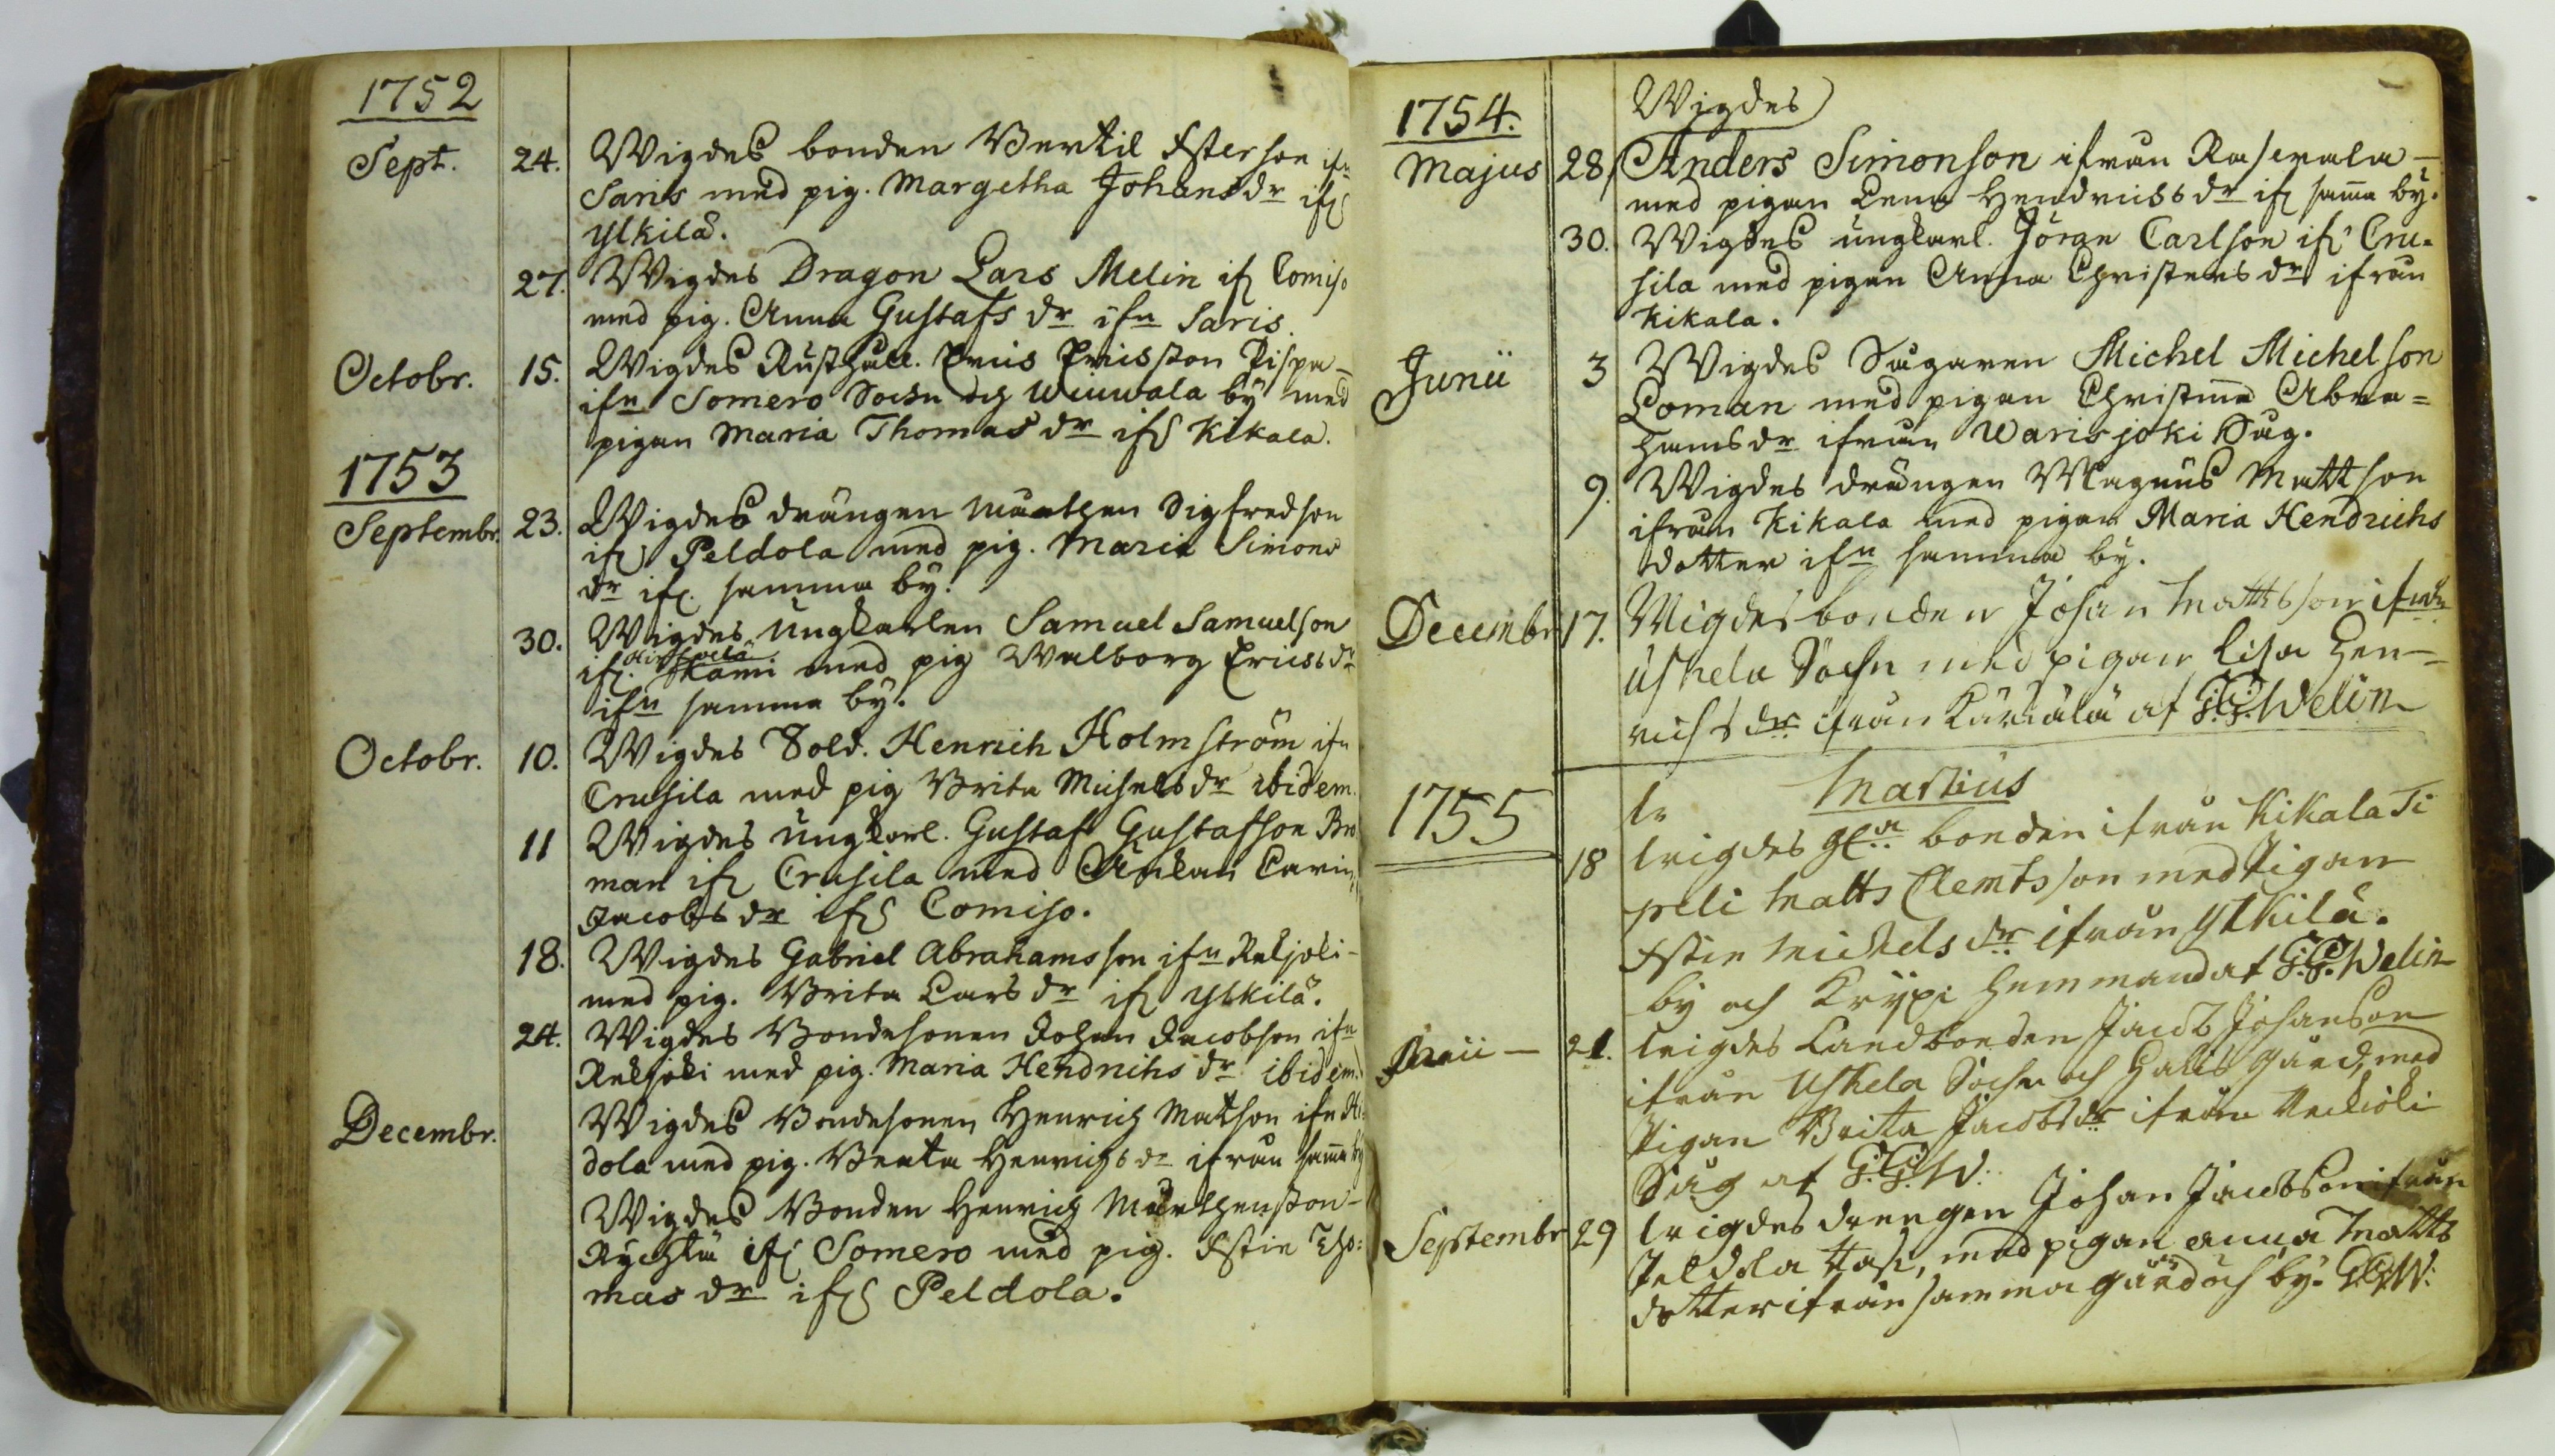 1752
Sept. 24. Wigdes bonden Bertil Esterson ifn
Saris med pig. Margetha Johans dr if
Ylkilä.
27. Wigdes Dragon Lars Melin if Comiso
med pig. Anna Gustafs dr ifn Saris.
Octobr. 15. Wigdes Rusthåll. Eriis Ericsson Pispa
ifn Somero Sochn och Wiuwala by med
pigan Maria Thomas dr if Kikala.
1753
Septembr. 23. Wigdes drängen Mårthen Sigfredson
if Peldola med pig. Maria Simons
dr if. samma by.
30. Wigdes Ungkarlen Samuel Samuelson
if. Hirsjela med pig Walborg Ericss dr
ifn samma by.
Octobr. 10. Wigdes Sold. Henrich Holmström ifn
Crusila med pig Brita Michels dr ibidem.
11 Wigdes ungkarl. Gustaf Gustafson Bro
man if Crusila med Änkan Carin
Jacobs dr if Comiso.
18. Wigdes Gabriel Abrahamsson ifn Rekjoki
med pig. Brita Lars dr if Ylkilä.
24. Wigdes Bondesonen Johan Jacobson ifn
Rekijoki med pig. Maria Hendrichs dr ibidem.
Decembr. Wigdes Bondesonen Henrich Matson ifn
dola med pig. Beata Henrichs dr ifrån sama by
Wigdes Bonden Henrich Mårthensson
Rychtü if Somero med pig. Estin Tho:
mas dr if Peldola.
1754. Wigdes
Majus 28 Anders Simonson ifrån Raserala
med pigan Lena Hendricss dr if sama by.
30. Wigdes ungkarl. Jöran Carlson if Cru=
sila med pigan Anna Christers dr ifrån
Kikala.
Junii 3 Wigdes Sågaren Michel Michelson
Loman med pigan Christina Abra=
hams dr ifrån Warisjoki Såg.
9. Wigdes drängen Magnus Mattson
ifrån Kikala med pigan Maria Hendrichs
dotter ifn samma by.
Decembr 17. Wigdes bonden Johan Mattsson ifrån
Uskela Sochn med pigan Lisa Hen=
richs dr ifrån Kärälä af G:G: Welin
1755 Martius
18 wigdes bonden ifrån Kikala Ti
peli Matts Clemtsson med Pigan
Estin Michels dr ifrån Ylkilä.
by och Krypi hemmand af G:G: Welin
Maii — 21. wigdes Landbonden Jacob Johanson
ifrån Uskela Sochn och Halis gård, med
Pigan Brita Jacobs dr ifrån Reckioki
Såg af G:G:W:
Septembr 29 wigdes drengen Johan Jacobson ifrån
Peldola Kass, med pigan anna Matts
dotter ifrån samma gård och by. G:G:W: